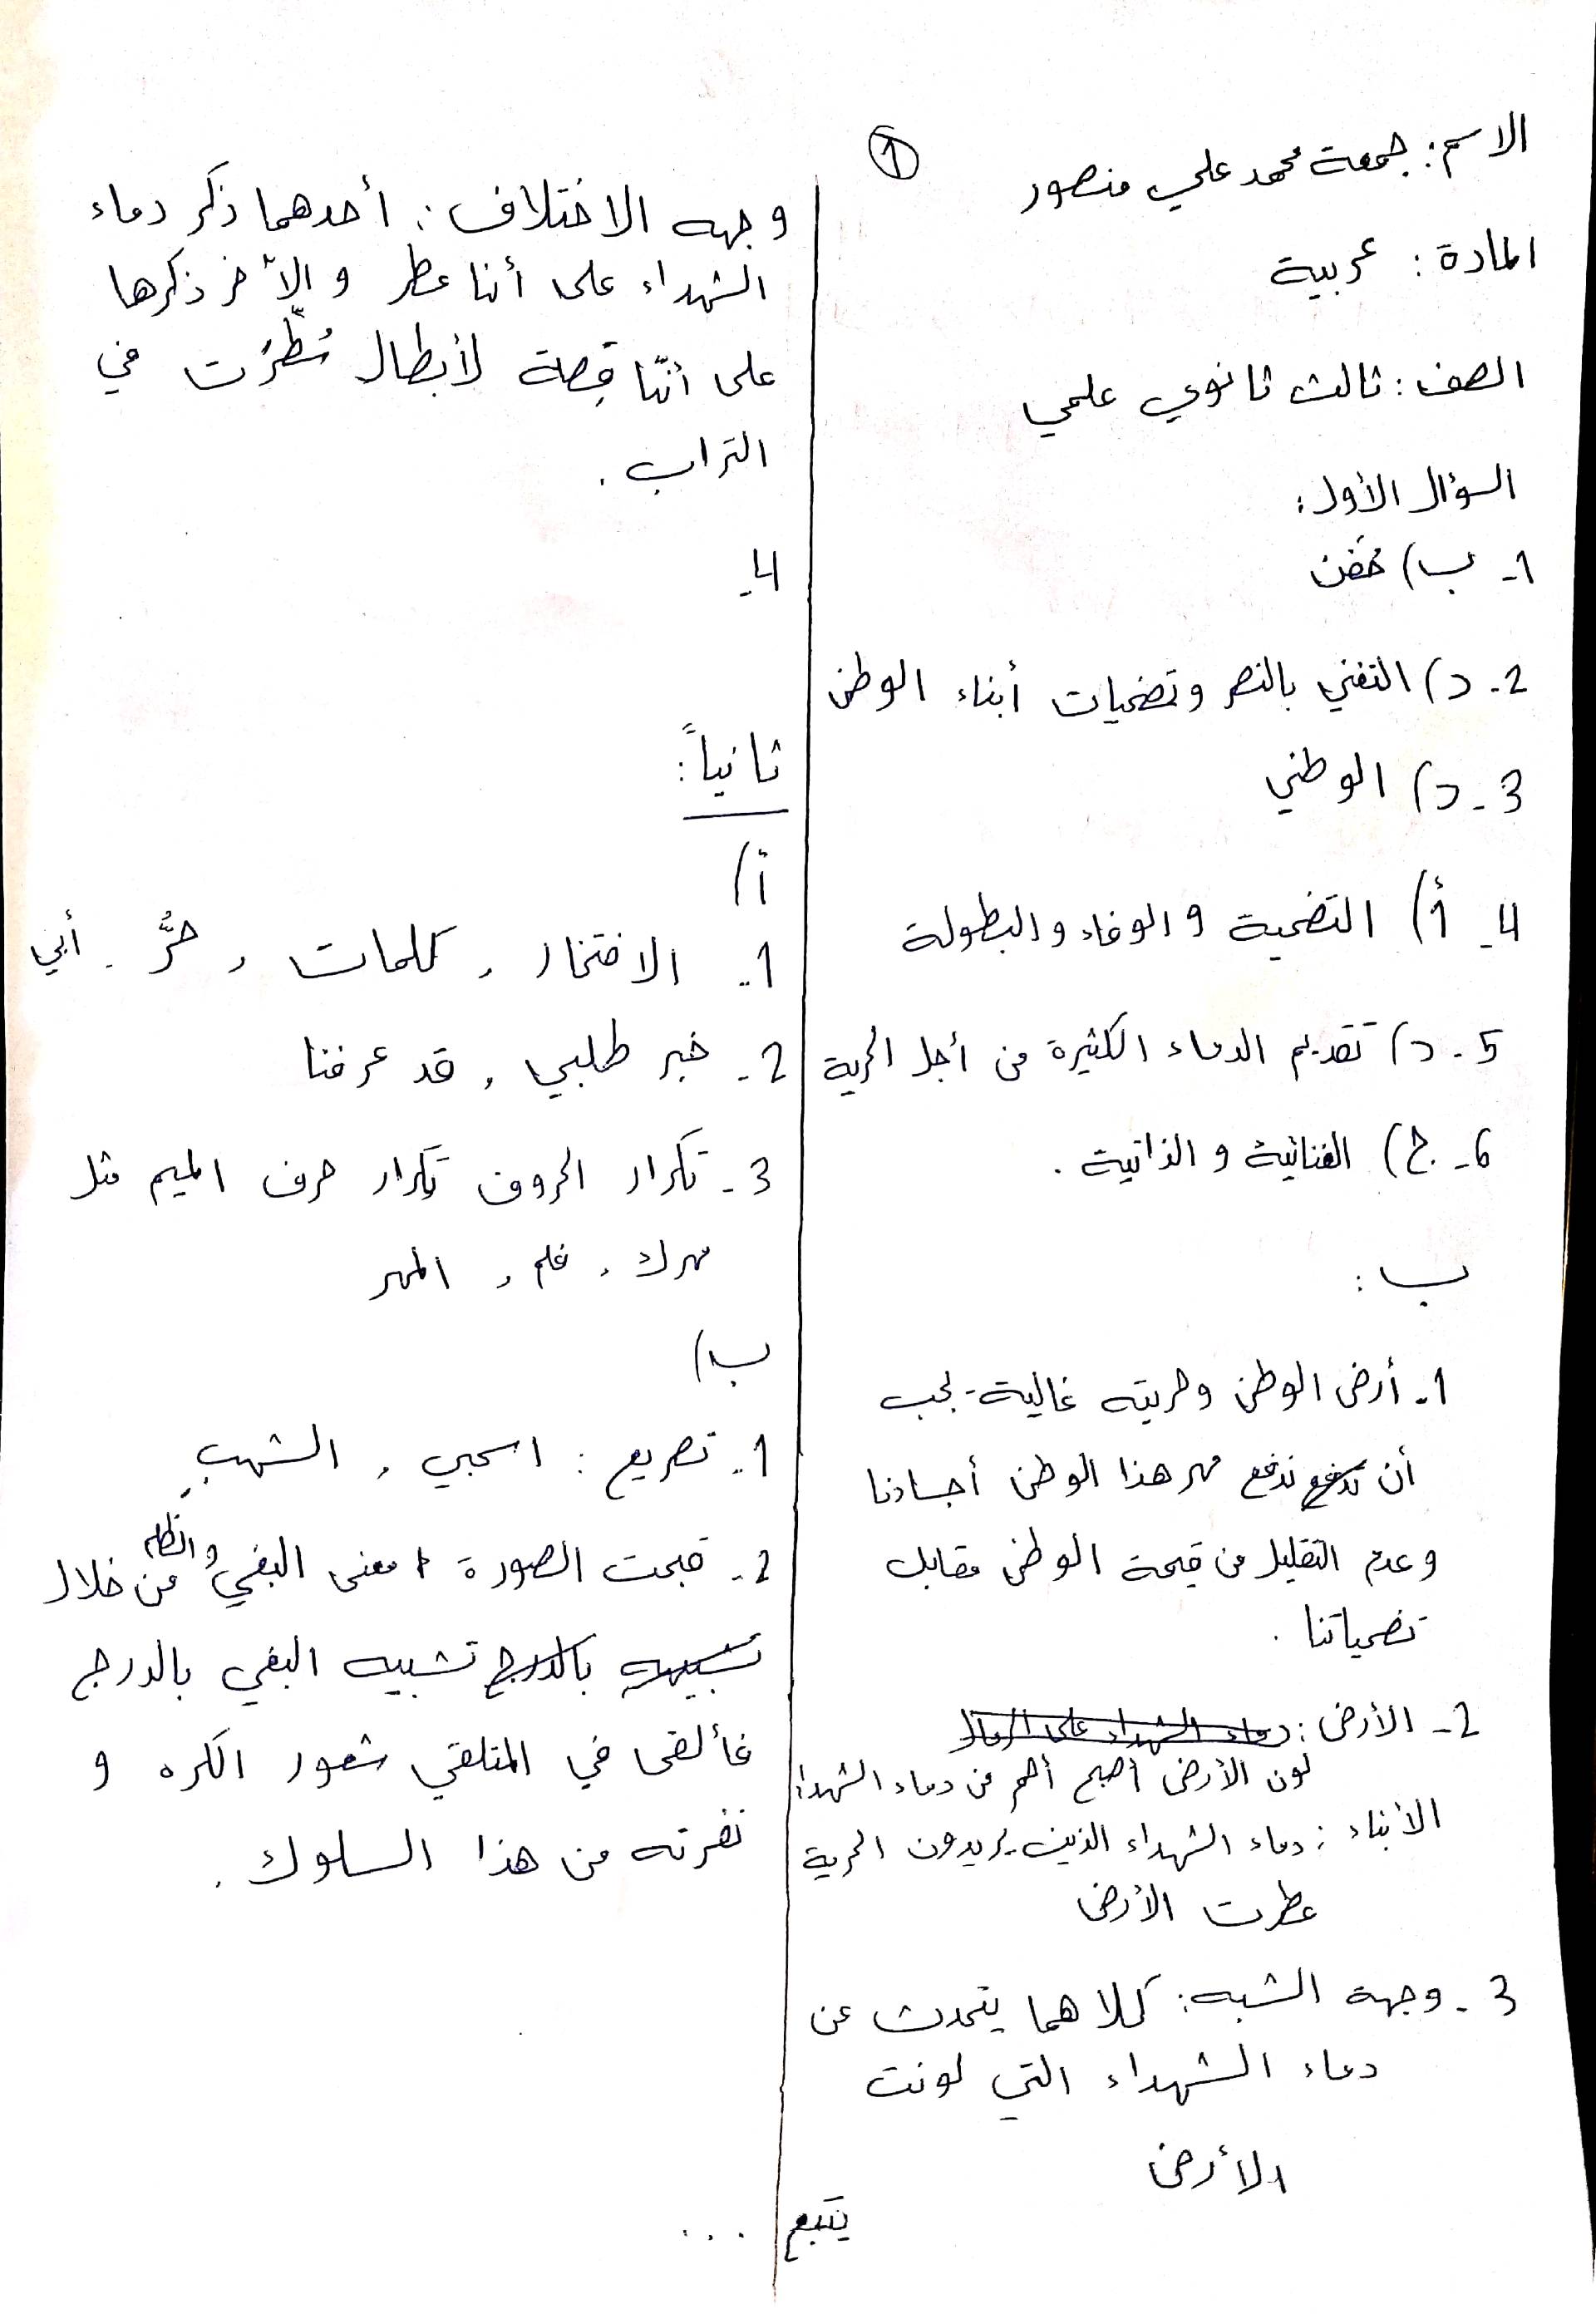 ①
الاسم: جمعة محمد علي منصور
المادة: عربية
الصف: ثالث ثانوي علمي
السؤال الأول:
1- ب)
2- د) التغني بالنصر وتضحيات أبناء الوطن
3- د) الوطني
4- أ) التضحية والوفاء والبطولة
5- د) تقديم الدماء الكثيرة من أجل الحرية
6- ج) الغنائية والذاتية.
ب:
1- أرض الوطن وحريته غالية يجب
أن ندفع مهر هذا الوطن أجسادنا
وعدم التقليل من قيمة الوطن مقابل
تضحياتنا.
2- الأرض: دماء الشهداء على الرمال
لون الأرض أصبح أحمر من دماء الشهداء
الأبناء: دماء الشهداء الذين يريدون الحرية
عطرت الأرض
3- وجهة الشبه: كلاهما يتحدث عن
دماء الشهداء التي لونت
الأرض
يتبع ...
وجهه الاختلاف: أحدهما ذكر دماء
الشهداء على أننا عطر والآخر ذكرها
على أنّنا قصة لأبطال سُطِّرت في
التراب.
4-
ثانياً:
أ)
1- الافتخار، كلمات، حرُّ، أبي
2- خبر طلبي، قد عرفنا
3- تكرار الحروف تكرار حرف الميم مثل
مهرك، فلم، المهر
ب)
1- تصريع: اسحبي، الشهبِ
2- قبحت الصورة معنى البغي والظلم من خلال
تشبيه بالدرج تشبيه البغي بالدرج
فألقى في المتلقي شعور الكره و
نفرته من هذا السلوك.